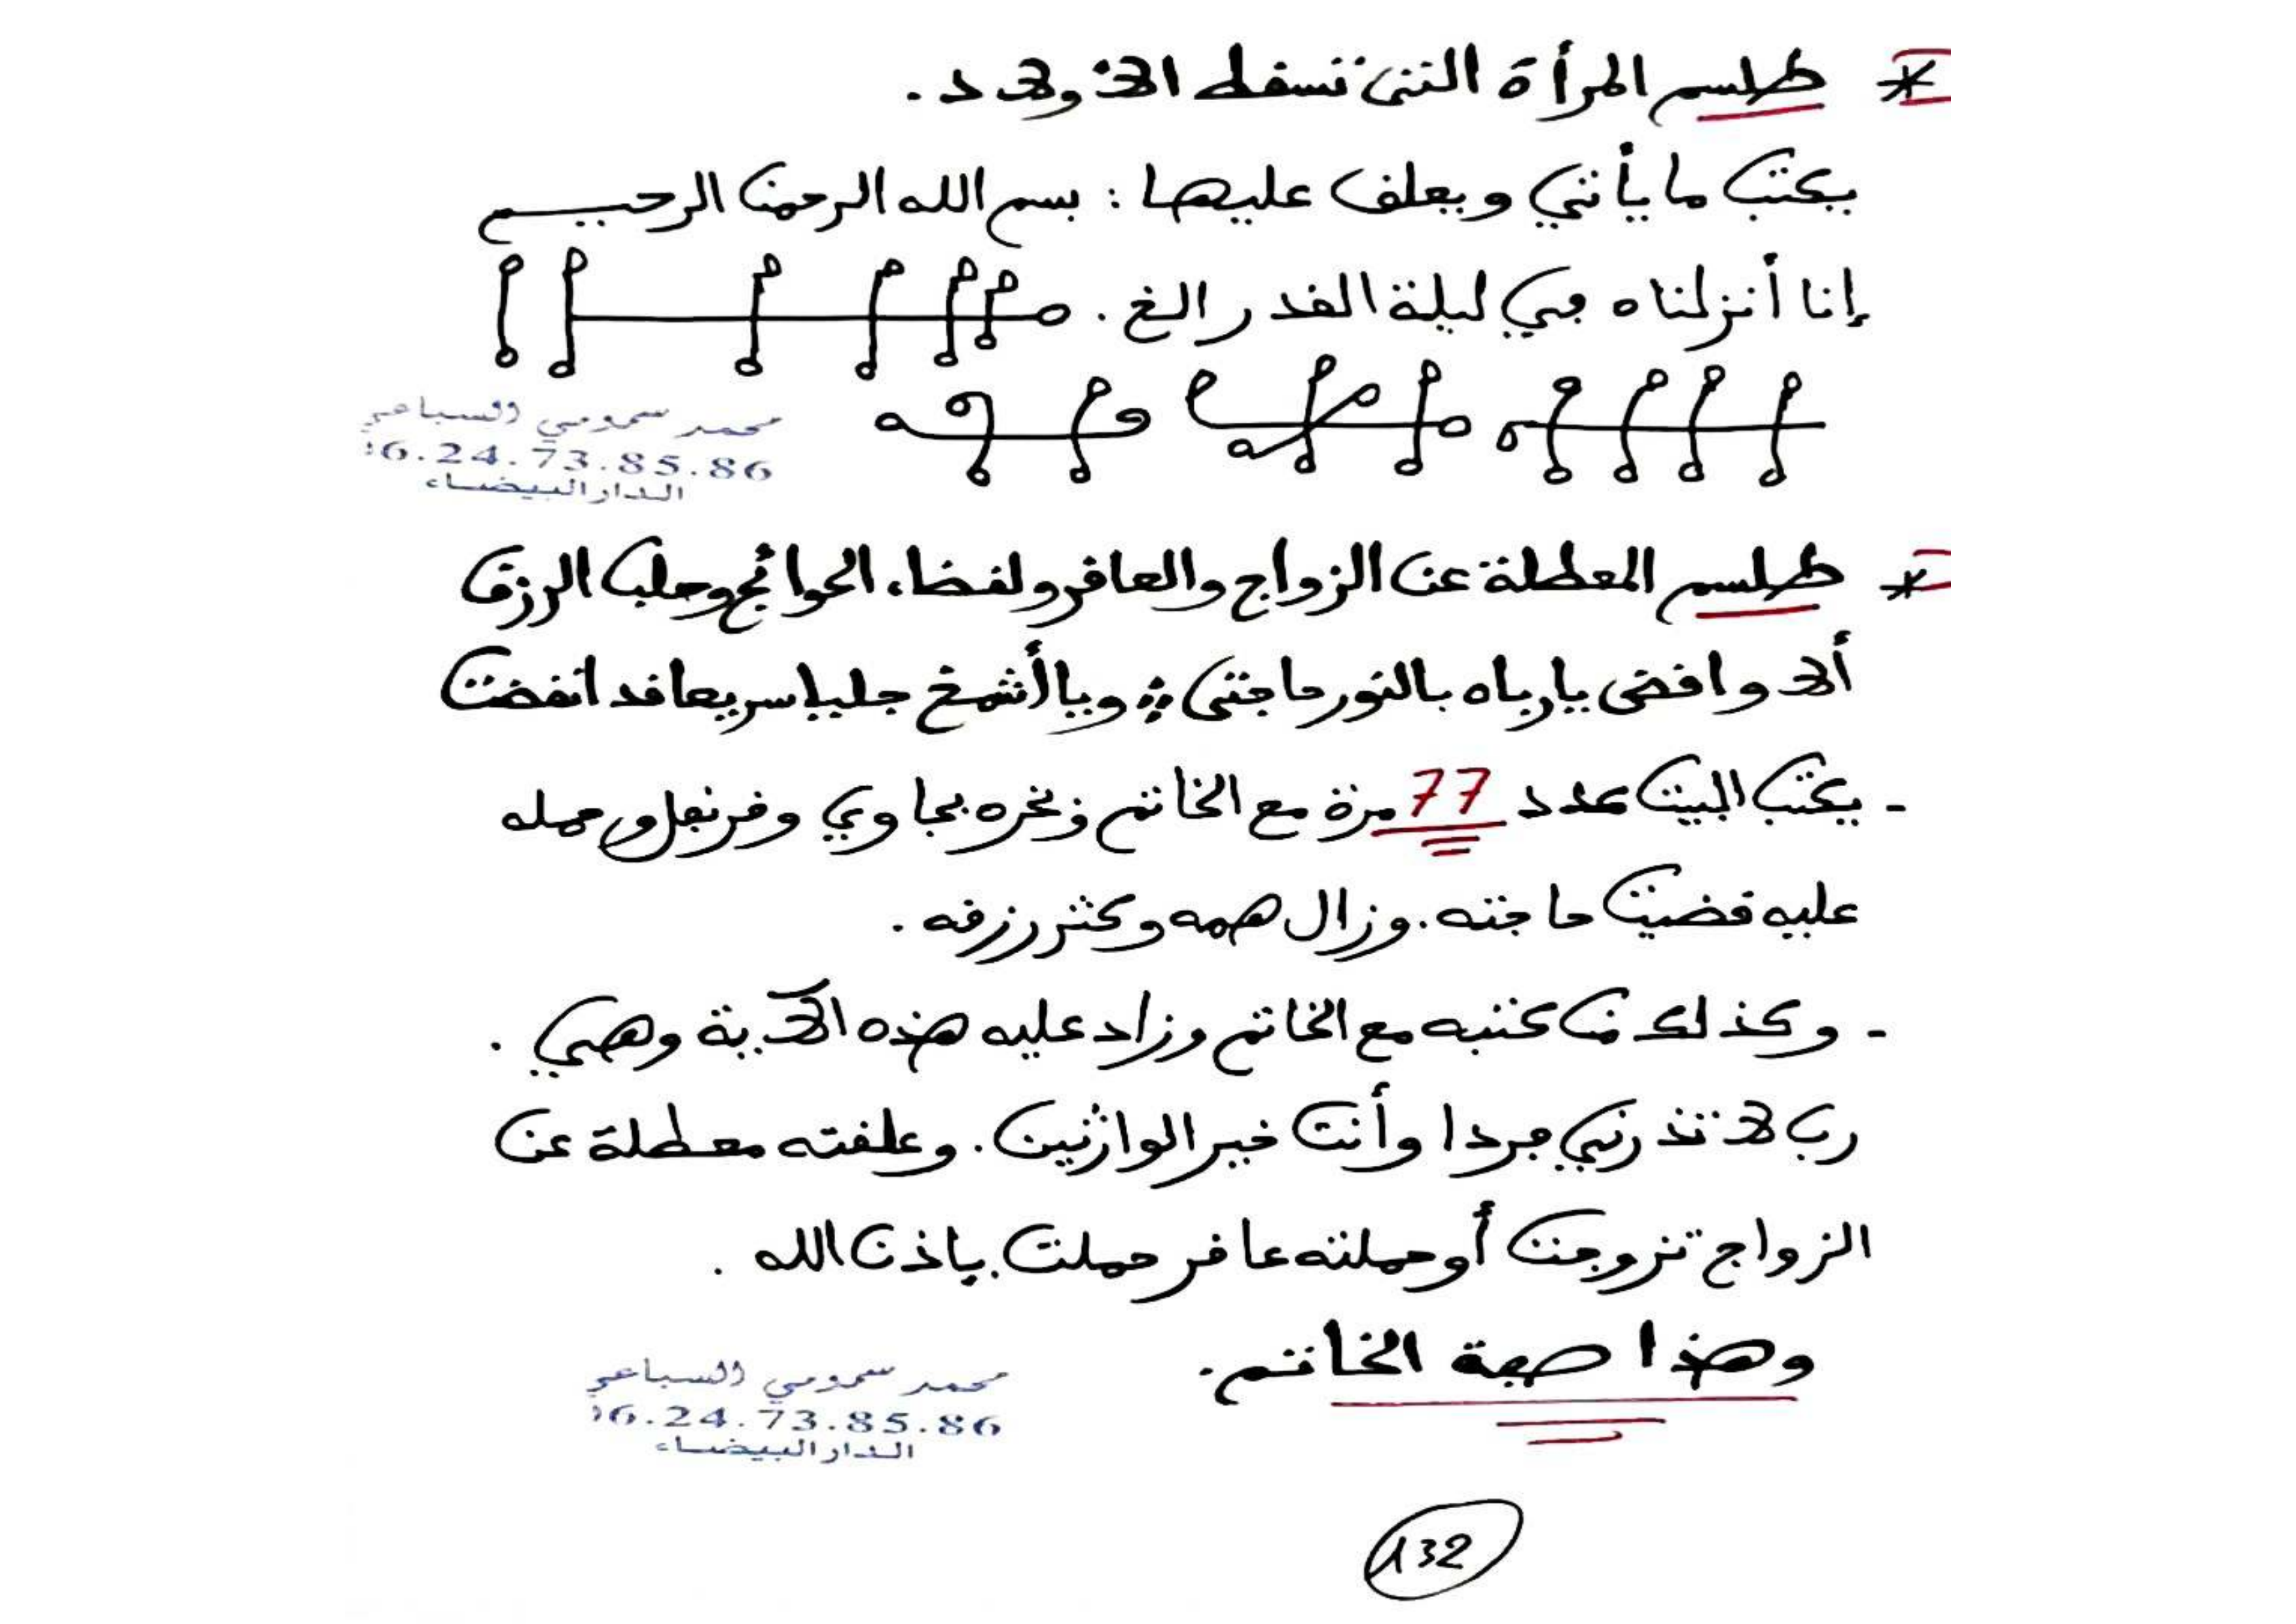 * طلسم المرأة التي تسقط الأولاد.
يكتب ما يأتي ويعلق عليها : بسم الله الرحمن الرحيم
إنا أنزلناه في ليلة القدر الخ.
محمد سمومي السباعي
6.24.73.85.86
الدار البيضاء
* طلسم المعطلة عن الزواج والعاقر ولقضاء الحوائج وجلب الرزق
ألا واقضى يا رباه بالنور حاجتي ؞ ويا أشمخ جلبا سريعا قد انقضت
- يكتب البيت عدد 77 مرة مع الخاتم وبخره بجاوي وقرنفل وحمله
عليه قضيت حاجته. وزال همه وكثر رزقه.
- وكذلك من كتبه مع الخاتم وزاد عليه هذه الآية وهي.
رب لا تذرني فردا وأنت خير الوارثين. وعلقته معطلة عن
الزواج تزوجت أو حملته عاقر حملت بإذن الله.
وهذا صفة الخاتم.
محمد سمومي السباعي
6.24.73.85.86
الدار البيضاء
132